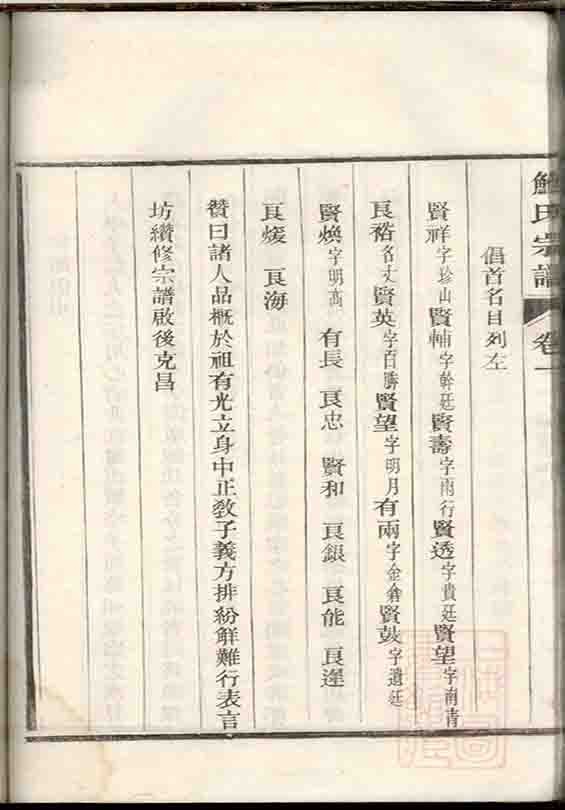 鮑氏宗譜 卷一
倡首名目列左
賢祥字珍山賢輔字幹廷賢壽字雨行賢透字貴廷賢望字南青
良裕名文賢英字百勝賢望字明月有兩字金倉賢鼓字遺廷
賢煥字明高 有長 良忠 賢和 良銀 良能 良達
良煖 良海
贊曰諸人品概於祖有光立身中正敎子義方排紛鮮難行表言
坊纘修宗譜啟後克昌